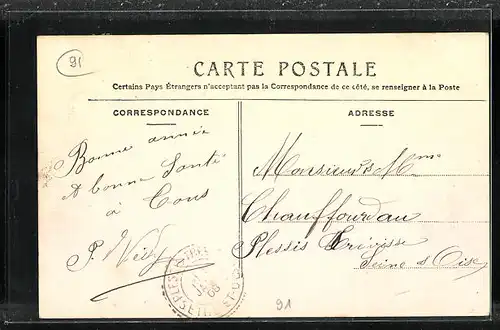 91
CARTE POSTALE
Certains Pays Étrangers n'acceptant pas la Correspondance de ce côté, se renseigner à la Poste
CORRESPONDANCE
Bonne année
& bonne Santé
à Tous
P. Weis
ADRESSE
Monsieur & Mme
Chauffourdau
Plessis
Seine & Oise
91